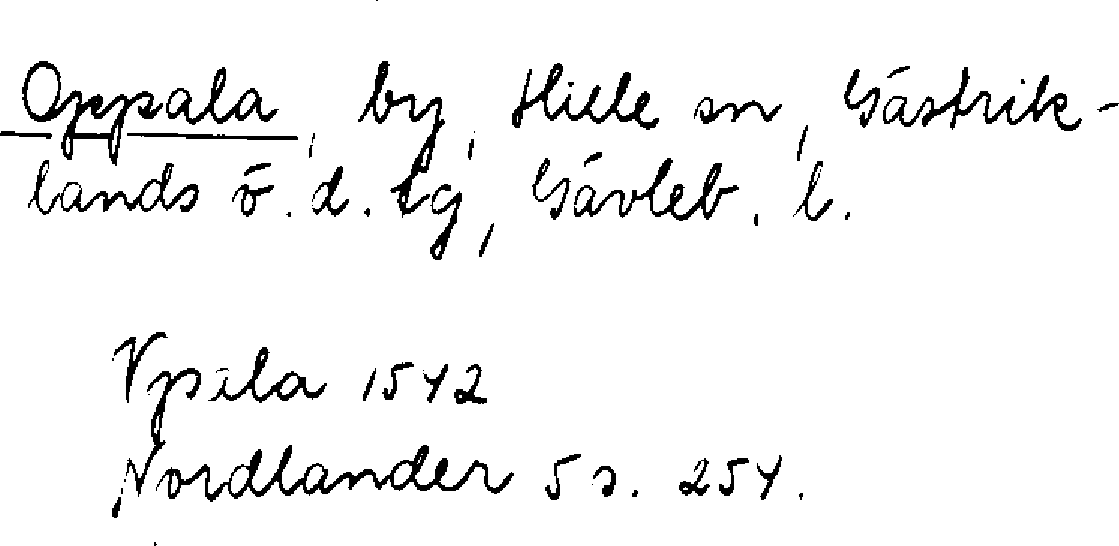 Oppala, by, Hille sn, Gästrik-
lands ö. d. tg, Gävleb. l.
Vpsila 1542
Nordlander 5 s. 254.